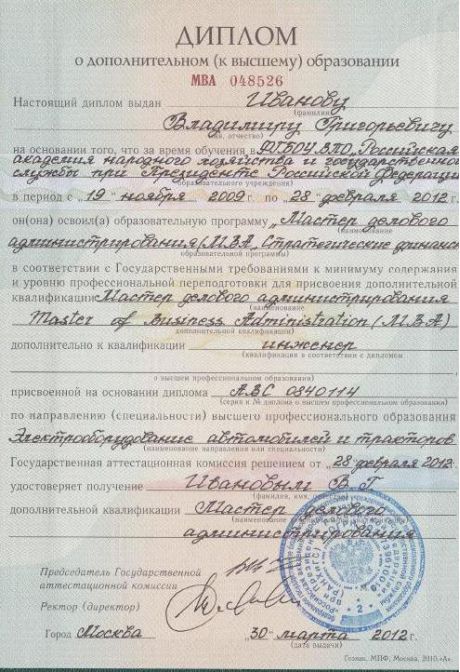 ДИПЛОМ
о дополнительном (к высшему) образовании
МВА 048526
Настоящий диплом выдан Иванову
(фамилия)
Владимиру Григорьевичу
(имя, отчество)
на основании того, что за время обучения в ФГБОУ ВПО „Российская
академия народного хозяйства и государственной
службы при Президенте Российской Федерации
образовательного учреждения)
в период с 19 ноября 2009 г. по 28 февраля 2012 г.
он(она) освоил(а) образовательную программу „Мастер делового
(наименование
администрирования (МВА, Стратегические финансы
образовательной программы)
в соответствии с Государственными требованиями к минимуму содержания
и уровню профессиональной переподготовки для присвоения дополнительной
квалификации Мастер делового администрирования
(наименование
Master of Business Administration (МВА)
дополнительной квалификации)
дополнительно к квалификации инженер
(квалификация в соответствии с дипломом
о высшем профессиональном образовании)
присвоенной на основании диплома АВС 0840114
(серия и № диплома о высшем профессиональном образовании)
по направлению (специальности) высшего профессионального образования
Электрооборудование автомобилей и тракторов
(наименование направления или специальности)
Государственная аттестационная комиссия решением от 28 февраля 2012
удостоверяет получение Ивановым В Г
(фамилия, имя,
дополнительной квалификации Мастер делового
(наименование
администрирования
Председатель Государственной
аттестационной комиссии
Ректор (директор)
Город Москва 30 марта 2012 г.
(дата выдачи)
Гознак, МПФ, Москва, 2010, «А».